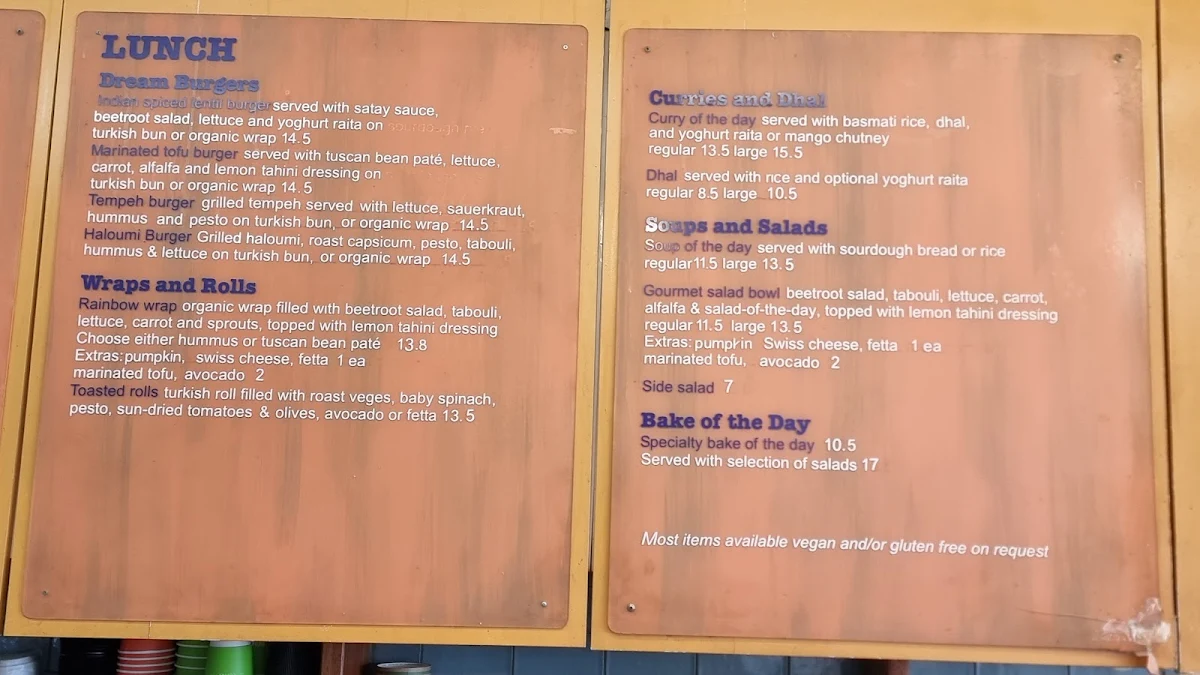 LUNCH
Dream Burgers
Indian spiced lentil burger served with satay sauce,
beetroot salad, lettuce and yoghurt raita on
turkish bun or organic wrap 14.5
Marinated tofu burger served with tuscan bean paté, lettuce,
carrot, alfalfa and lemon tahini dressing on
turkish bun or organic wrap 14.5
Tempeh burger grilled tempeh served with lettuce, sauerkraut,
hummus and pesto on turkish bun, or organic wrap 14.5
Haloumi Burger Grilled haloumi, roast capsicum, pesto, tabouli,
hummus & lettuce on turkish bun, or organic wrap 14.5
Wraps and Rolls
Rainbow wrap organic wrap filled with beetroot salad, tabouli,
lettuce, carrot and sprouts, topped with lemon tahini dressing
Choose either hummus or tuscan bean paté 13.8
Extras: pumpkin, swiss cheese, fetta 1 ea
marinated tofu, avocado 2
Toasted rolls turkish roll filled with roast veges, baby spinach,
pesto, sun-dried tomatoes & olives, avocado or fetta 13.5
Curries and Dhal
Curry of the day served with basmati rice, dhal,
and yoghurt raita or mango chutney
regular 13.5 large 15.5
Dhal served with rice and optional yoghurt raita
regular 8.5 large 10.5
Soups and Salads
Soup of the day served with sourdough bread or rice
regular 11.5 large 13.5
Gourmet salad bowl beetroot salad, tabouli, lettuce, carrot,
alfalfa & salad-of-the-day, topped with lemon tahini dressing
regular 11.5 large 13.5
Extras: pumpkin Swiss cheese, fetta 1 ea
marinated tofu, avocado 2
Side salad 7
Bake of the Day
Specialty bake of the day 10.5
Served with selection of salads 17
Most items available vegan and/or gluten free on request